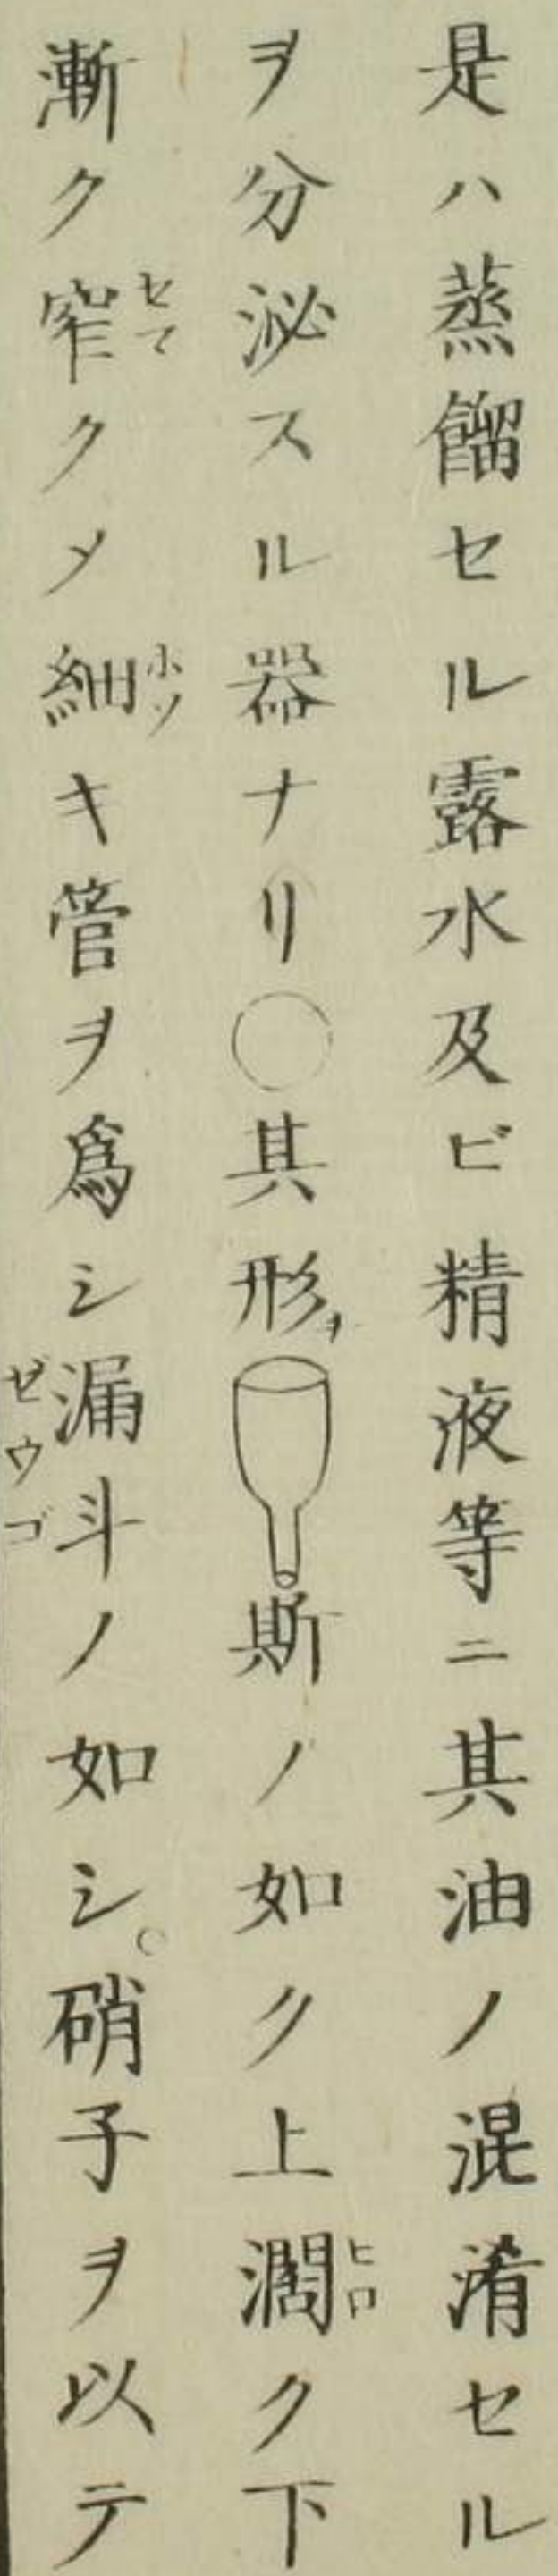 是ハ蒸餾セル露水及ビ精液等ニ其油ノ混淆セル
ヲ分泌スル器ナリ〇其形ヲ斯ノ如ク上濶ヒロク下
漸ク窄セマクメ細ホソキ管ヲ爲シ漏斗ゼウゴノ如シ。硝子ヲ以テ